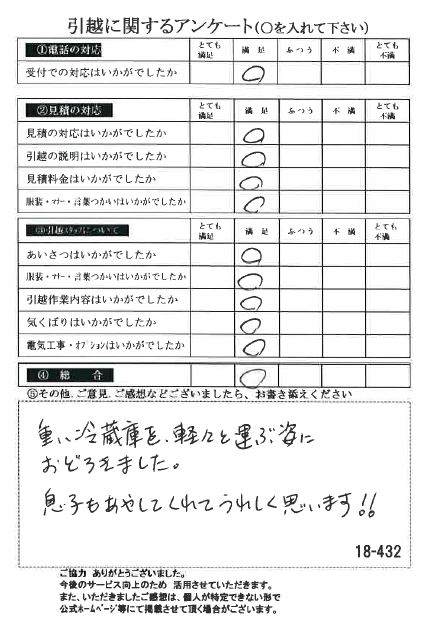 引越に関するアンケート(○を入れて下さい)
①電話の対応 とても満足 満足 ふつう 不満 とても不満
受付での対応はいかがでしたか ○
②見積の対応 とても満足 満足 ふつう 不満 とても不満
見積の対応はいかがでしたか ○
引越の説明はいかがでしたか ○
見積料金はいかがでしたか ○
服装・マナー・言葉つかいはいかがでしたか ○
③引越スタッフについて とても満足 満足 ふつう 不満 とても不満
あいさつはいかがでしたか ○
服装・マナー・言葉つかいはいかがでしたか ○
引越作業内容はいかがでしたか ○
気くばりはいかがでしたか ○
電気工事・オプションはいかがでしたか ○
④ 総 合 ○
⑤その他、ご意見、ご感想などございましたら、お書き添えください
重い冷蔵庫を、軽々と運ぶ姿に
おどろきました。
息子もあやしてくれてうれしく思います!!
18-432
ご協力 ありがとうございました。
今後のサービス向上のため 活用させていただきます。
また、いただきましたご感想は、個人が特定できない形で
公式ホームページ等にて掲載させて頂く場合がございます。